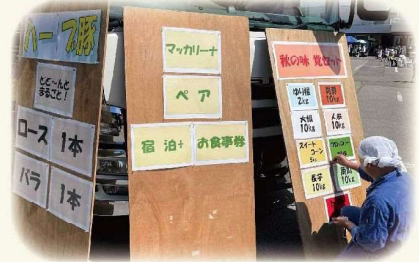 ハーブ豚
どど〜んと
まるごと!
ロース 1本
バラ 1本
マッカリーナ
ペア
宿泊+お食事券
秋の味覚セット
ゆり根
2kg
大根
10kg
人参
10kg
スイート
コーン
長芋
10kg
10kg